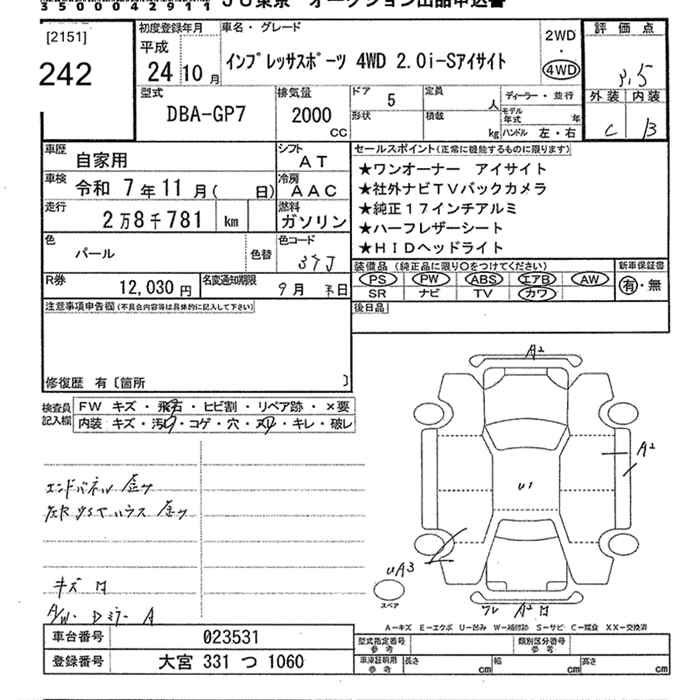 350042911 JU東京 オークション出品申込書
[2151]
242
初度登録年月
平成
24 10 月
車名・グレード
インプレッサスポーツ 4WD 2.0i-Sアイサイト
2WD
・
4WD
評価点
3.5
外装 内装
C B
型式
DBA-GP7
排気量
2000
CC
ドア 5
形状
定員 人
積載 kg
ディーラー・並行
モデル年式 年
ハンドル 左・右
車歴
自家用
シフト
AT
車検
令和 7年11月( 日)
冷房
AAC
走行
2万8千781 km
燃料
ガソリン
色
パール
色替
色コード
37J
R券
12,030円
名変通知期限
9月 末日
セールスポイント(正常に機能するものに限ります)
★ワンオーナー アイサイト
★社外ナビTVバックカメラ
★純正17インチアルミ
★ハーフレザーシート
★HIDヘッドライト
装備品(純正品に限り○をつけてください)
PS PW ABS エアB AW
SR ナビ TV カワ
新車保証書
有・無
後日品
注意事項申告欄(不具合内容等は具体的に記入して下さい)
修復歴 有〔箇所 〕
検査員記入欄
FW キズ・飛石・ヒビ割・リペア跡・×要
内装 キズ・汚レ・コゲ・穴・ヌリ・キレ・破レ
エンドパネル 歪ツ
左R インナーハウス 歪ツ
キズ 凹
A/W・Dミラー A
A2
A2
U1
UA3
スペア
ワレ A2 凹
A-キズ E-エクボ U-凹み W-補修跡 S-サビ C-腐食 XX-交換済
車台番号 023531
登録番号 大宮 331 つ 1060
型式指定番号参考
類別区分番号参考
車庫証明用参考
長さ cm 幅 cm 高さ cm